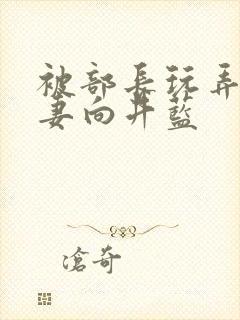 被部長玩弄
妻向井藍
滄奇